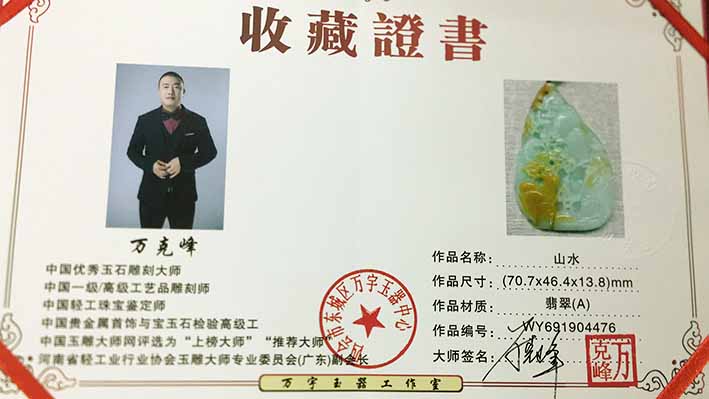 收藏證書
万克峰
中国优秀玉石雕刻大师
中国一级/高级工艺品雕刻师
中国轻工珠宝鉴定师
中国贵金属首饰与宝玉石检验高级工
中国玉雕大师网评选为“上榜大师”“推荐大师”
河南省轻工业行业协会玉雕大师专业委员会(广东)副会长
作品名称: 山水
作品尺寸: (70.7x46.4x13.8)mm
作品材质: 翡翠(A)
作品编号: WY691904476
大师签名: 万克峰
万克峰
会市东城区万字玉器中心
万字玉器工作室